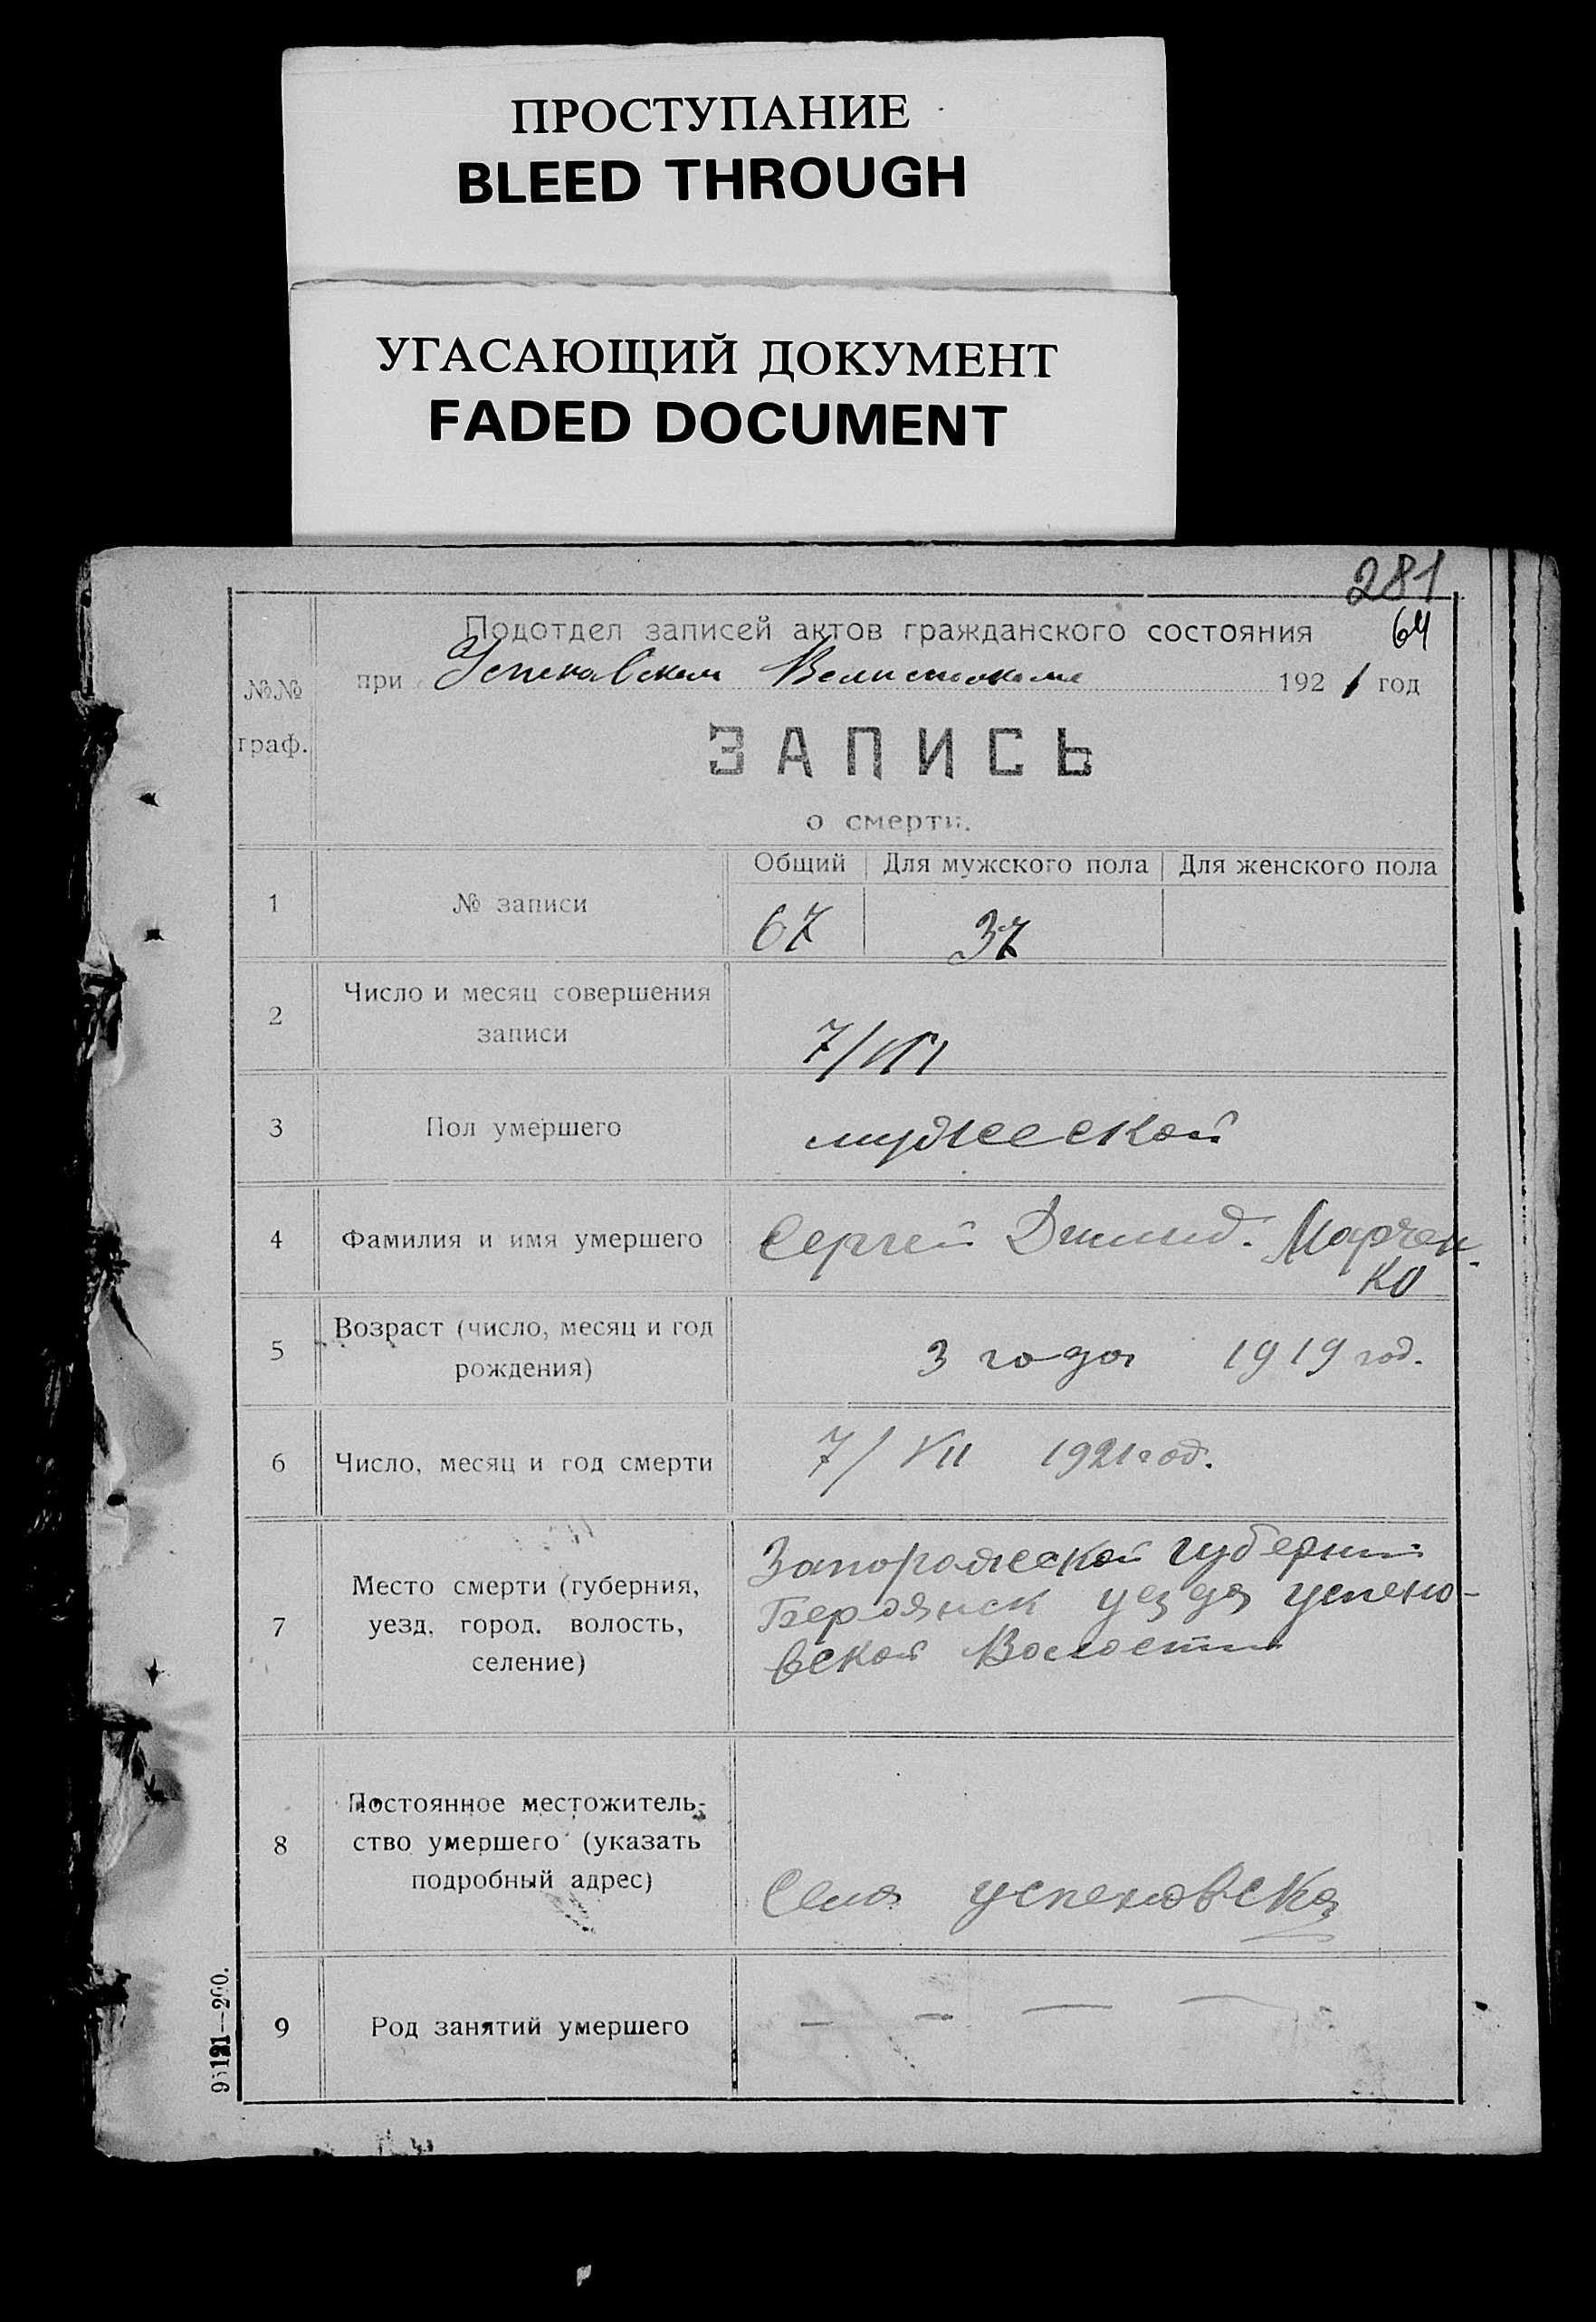 ПРОСТУПАНИЕ
BLEED THROUGH
УГАСАЮЩИЙ ДОКУМЕНТ
FADED DOCUMENT
281
64
Подотдел записей актов гражданского состояния
№№ граф.
при Успеновском Волисполкоме 1921 год
ЗАПИСЬ
о смерти.
Общий Для мужского пола Для женского пола
1 № записи 67 37
2 Число и месяц совершения
записи 7/VII
3 Пол умершего мужеской
4 Фамилия и имя умершего Сергей Марчен-
ко
5 Возраст (число, месяц и год
рождения) 3 года 1919 год.
6 Число, месяц и год смерти 7/VII 1921 год.
7 Место смерти (губерния,
уезд, город, волость,
селение)
Запорожской губернии
Бердянск уезда успено-
вской Волости
8 Постоянное местожитель-
ство умершего (указать
подробный адрес)
Села успеновска
9 Род занятий умершего — — — —